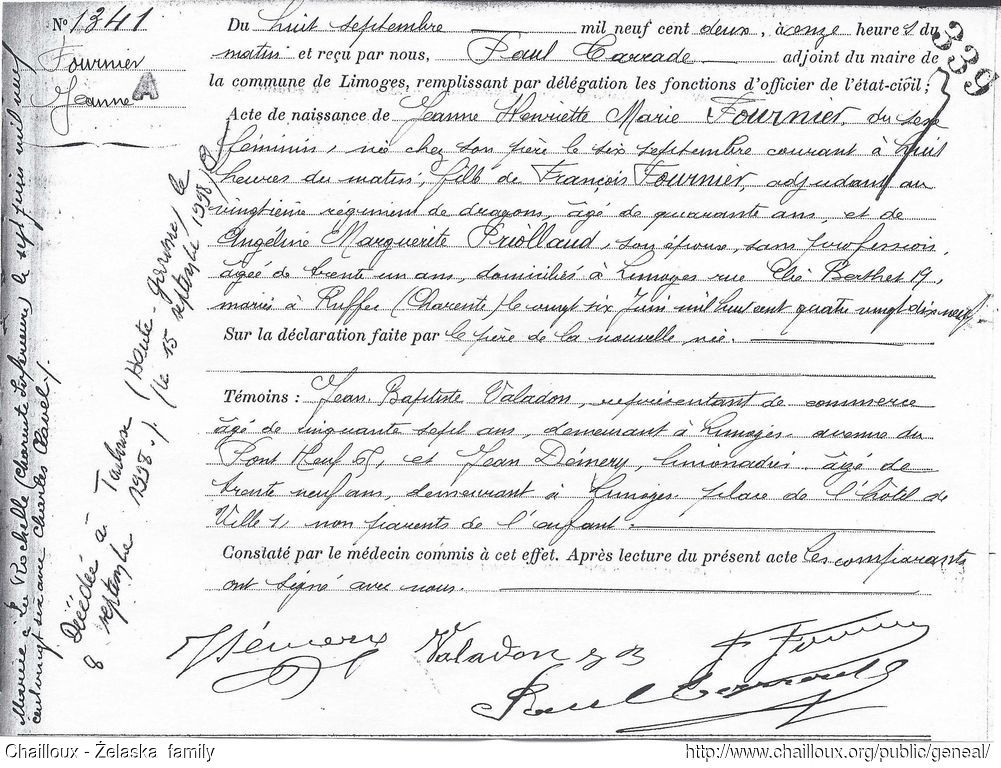 N° 1341
Fournier
Jeanne A
339
Du huit septembre mil neuf cent deux, à onze heures du
matin et reçu par nous, Paul Carrade adjoint du maire de
la commune de Limoges, remplissant par délégation les fonctions d'officier de l'état-civil;
Acte de naissance de Jeanne Henriette Marie Fournier, du sexe
féminin, née chez son père le six septembre courant à huit
heures du matin, fille de François Fournier, adjudant au
vingtième régiment de dragons, âgé de quarante ans, et de
Angéline Marguerite Priolland, son épouse, sans profession,
âgée de trente un ans, domiciliés à Limoges rue Elie Berthet 19,
mariés à Ruffec (Charente) le vingt six Juin mil huit cent quatre vingt dix neuf.
Sur la déclaration faite par le père de la nouvelle née.
Témoins : Jean Baptiste Valadon, représentant de commerce
âgé de cinquante sept ans, demeurant à Limoges avenue du
Pont Neuf 65, et Jean Démery, limonadier âgé de
trente neuf ans, demeurant à Limoges place de l'hôtel de
Ville 1, non parents de l'enfant.
Constaté par le médecin commis à cet effet. Après lecture du présent acte les comparants
ont signé avec nous.
Démery Valadon F Fournier
Paul Carrade
Mariée à La Rochelle (Charente Inférieure) le sept juin mil neuf
cent vingt six avec Charles Clavel
Décédée à Toulouse (Haute-Garonne) le
8 septembre 1998. /le 15 septembre 1998/
Chailloux - Želaska family
http://www.chailloux.org/public/geneal/